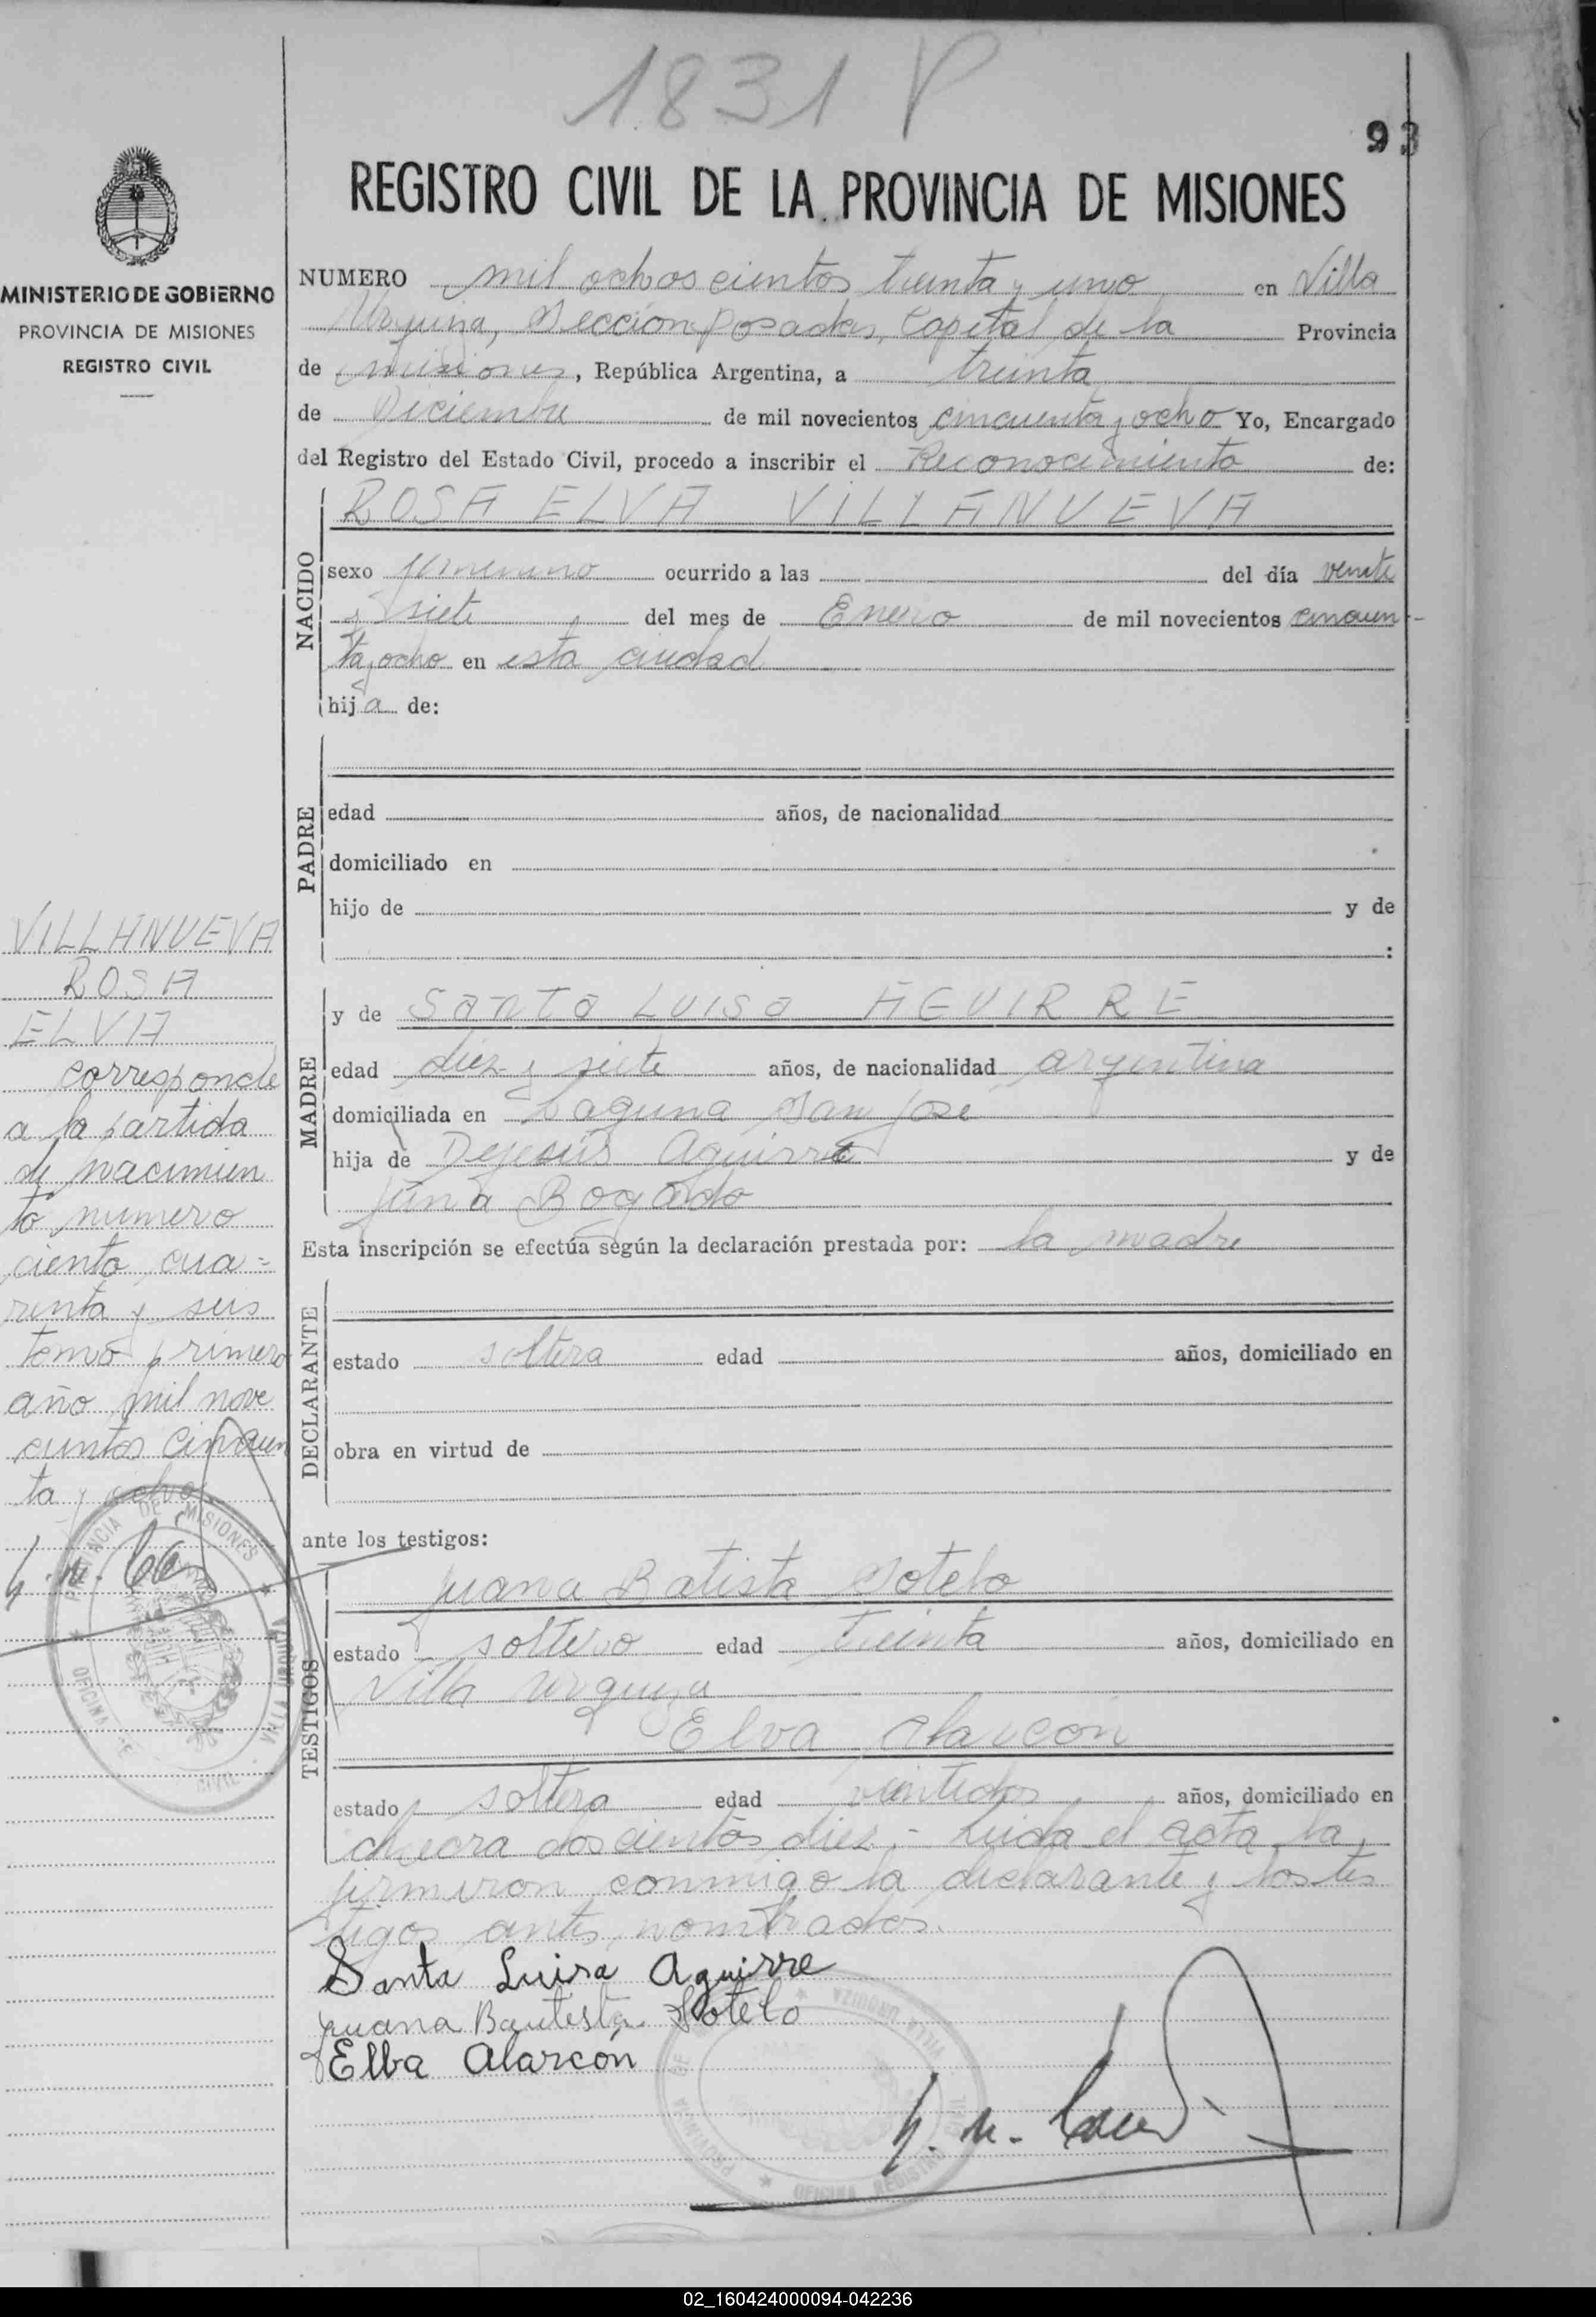 1831 V
93
REGISTRO CIVIL DE LA PROVINCIA DE MISIONES
MINISTERIO DE GOBIERNO
PROVINCIA DE MISIONES
REGISTRO CIVIL
NUMERO mil ochos cientos treinta y uno en Villa
Urquiza, Sección Posadas, Capital de la Provincia
de Misiones, República Argentina, a treinta
de Diciembre de mil novecientos cincuenta y ocho Yo, Encargado
del Registro del Estado Civil, procedo a inscribir el Reconocimiento de:
NACIDO
ROSA ELVA VILLANUEVA
sexo femenino ocurrido a las del día veinte
y siete del mes de Enero de mil novecientos cincuen-
ta y ocho en esta ciudad
hija de:
PADRE
edad años, de nacionalidad
domiciliado en
hijo de y de
:
MADRE
y de SANTA LUISA AGUIRRE
edad diez y siete años, de nacionalidad argentina
domiciliada en Laguna San José
hija de Dejesús Aguirre y de
Bogado
Esta inscripción se efectúa según la declaración prestada por: la madre
DECLARANTE
estado soltera edad años, domiciliado en
obra en virtud de
ante los testigos:
TESTIGOS
Juana Batista Sotelo
estado soltero edad treinta años, domiciliado en
Villa Urquiza
Elva Alarcon
estado soltera edad veintidos años, domiciliado en
doscientos diez.- Leida el acta la
firmeron conmigo la declarante y los tes
tigos antes nombrados.
Santa Luisa Aguirre
Juana Bautista Sotelo
Elba Alarcón
VILLANUEVA
ROSA
ELVA
corresponde
a la partida
de nacimien
to numero
ciento cua=
renta y seis
tomo primero
año mil nove
cientos cincuen
ta y ocho
PROVINCIA DE MISIONES
VILLA URQUIZA
OFICINA
CIVIL
VILLA URQUIZA
PROVINCIA DE
OFICINA REGISTRO
02_160424000094-042236